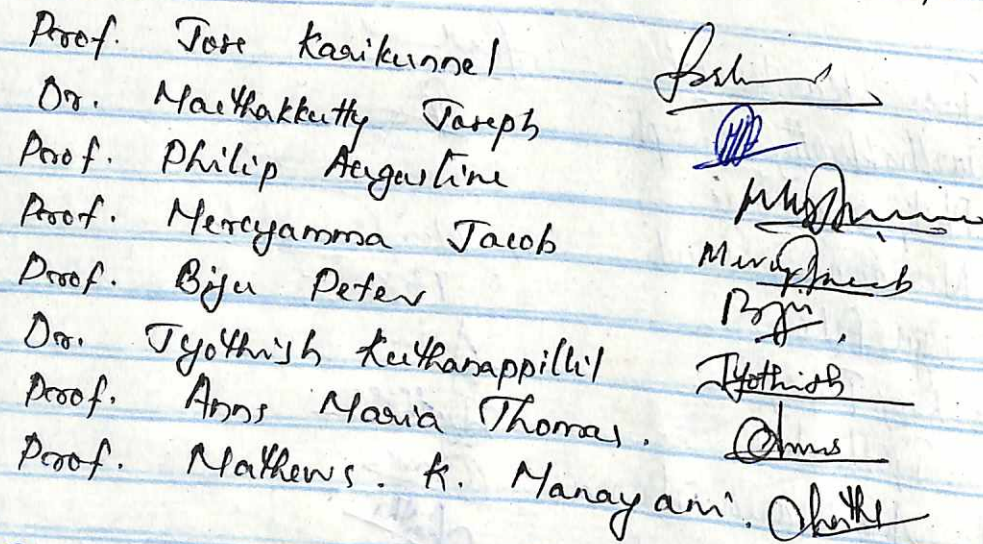 Prof. Jose Karikunnel
Dr. Maithakkutty Joseph
Prof. Philip Augustine
Prof. Mercyamma Jacob
Prof. Biju Peter Biju.
Dr. Jyothish Kuthanappillil Jyothish
Prof. Anns Maria Thomas.
Prof. Mathews. K. Manayani.